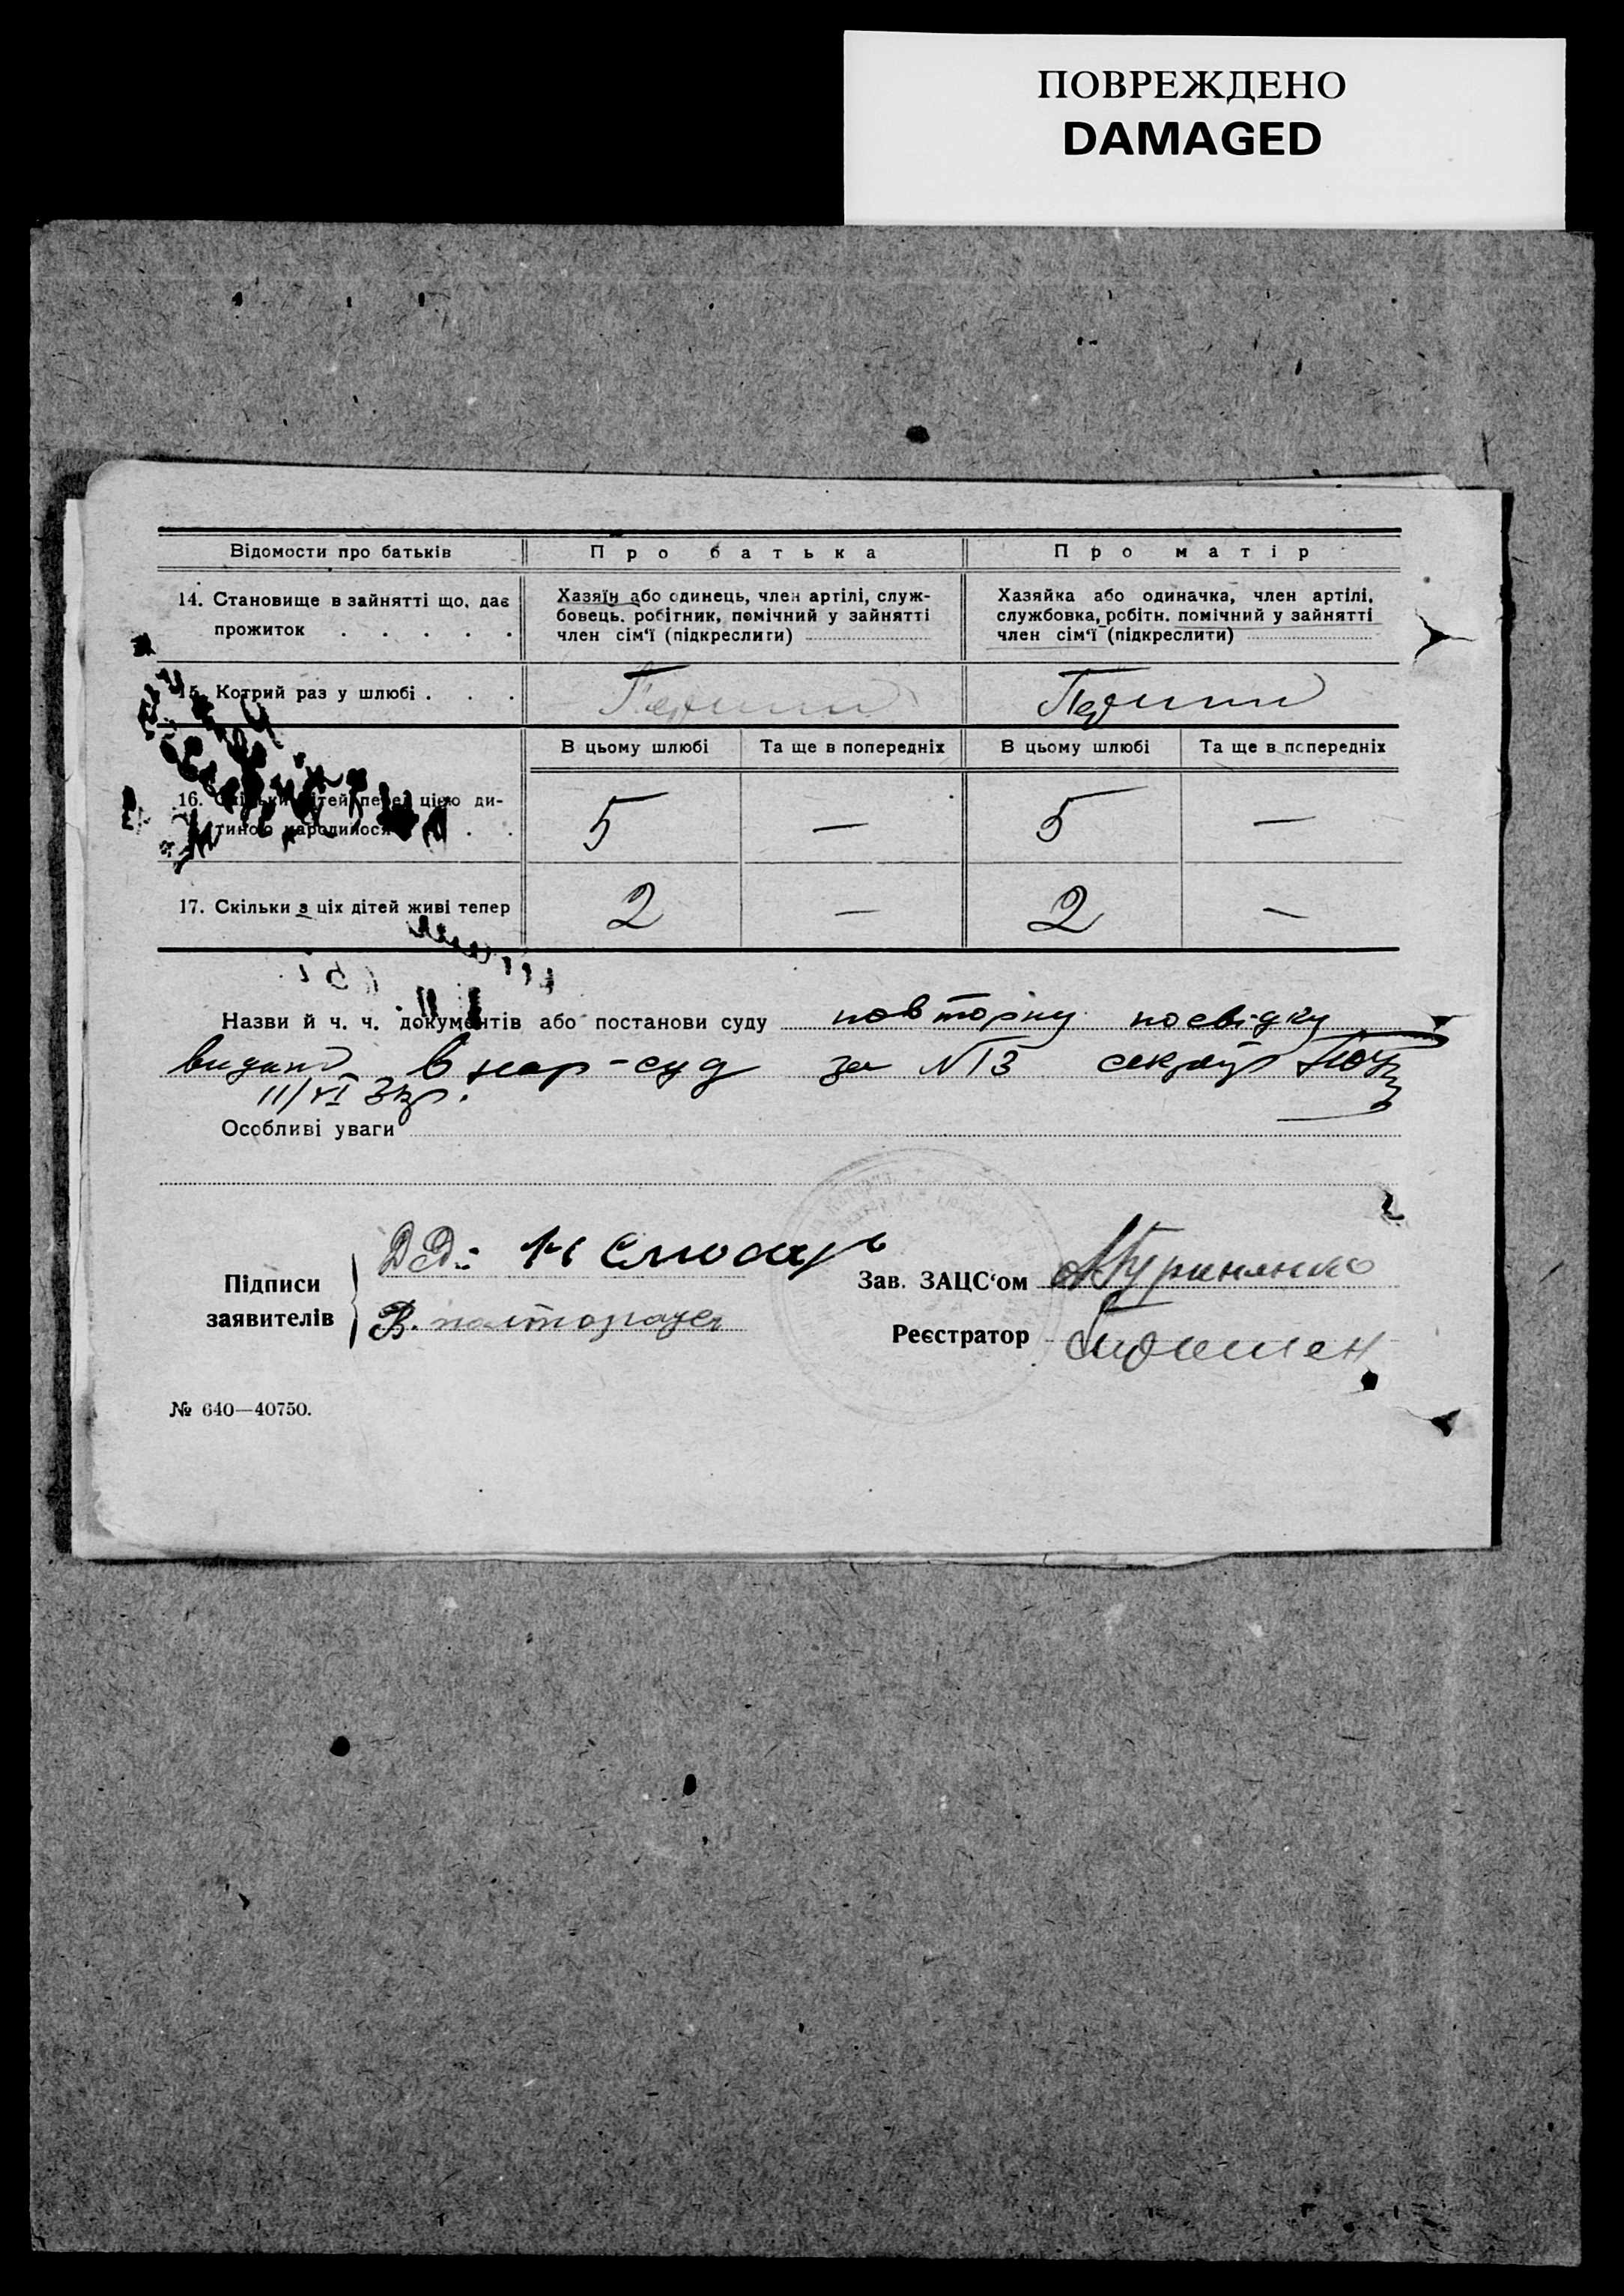 ПОВРЕЖДЕНО
DAMAGED
Відомости про батьків
Про батька
Про матір
14. Становище в зайнятті що, дає
прожиток . . . . .
Хазяїн або одинець, член артілі, служ-
бовець, робітник, помічний у зайнятті
член сім‘ї (підкреслити)
Хазяйка або одиначка, член артілі,
службовка, робітн. помічний у зайнятті
член сім‘ї (підкреслити)
15. Котрий раз у шлюбі . . .
Перший
Перший
В цьому шлюбі
Та ще в попередніх
В цьому шлюбі
Та ще в попередніх
16. Скільки дітей перед цією ди-
тиною народилося . .
5
—
5
—
17. Скільки з ціх дітей живі тепер
2
—
2
—
Назви й ч. ч. документів або постанови суду повторну посвідку
видано в нар-суд за №13
11/VI
Особливі уваги
Підписи
заявителів
Слюсарь
В.
Зав. ЗАЦС‘ом
Реєстратор
№ 640—40750.